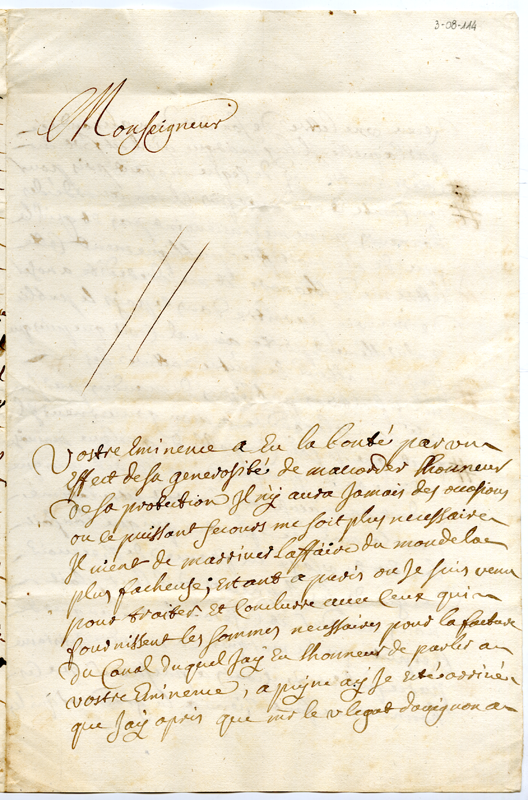 3-08-114
Monseigneur
Vostre Eminence a Eu la bonté par un
Effect de sa generosité de maccorder lhonneur
de sa protection Il ny aura Jamais des occasions
ou ce puissant secours me soit plus necessaire
Il vient de marriver laffaire du monde la
plus facheuse; Estant a paris ou Je suis venu
pour traiter Et Conclurre avec Ceux qui
fournissent les sommes necessaires pour la facture
du Canal duquel Jaÿ Eu lhonneur de parler a
vostre Eminence, a peyne aÿ Je esté arrivé
que Jaÿ apris que mr le v legat davignon a